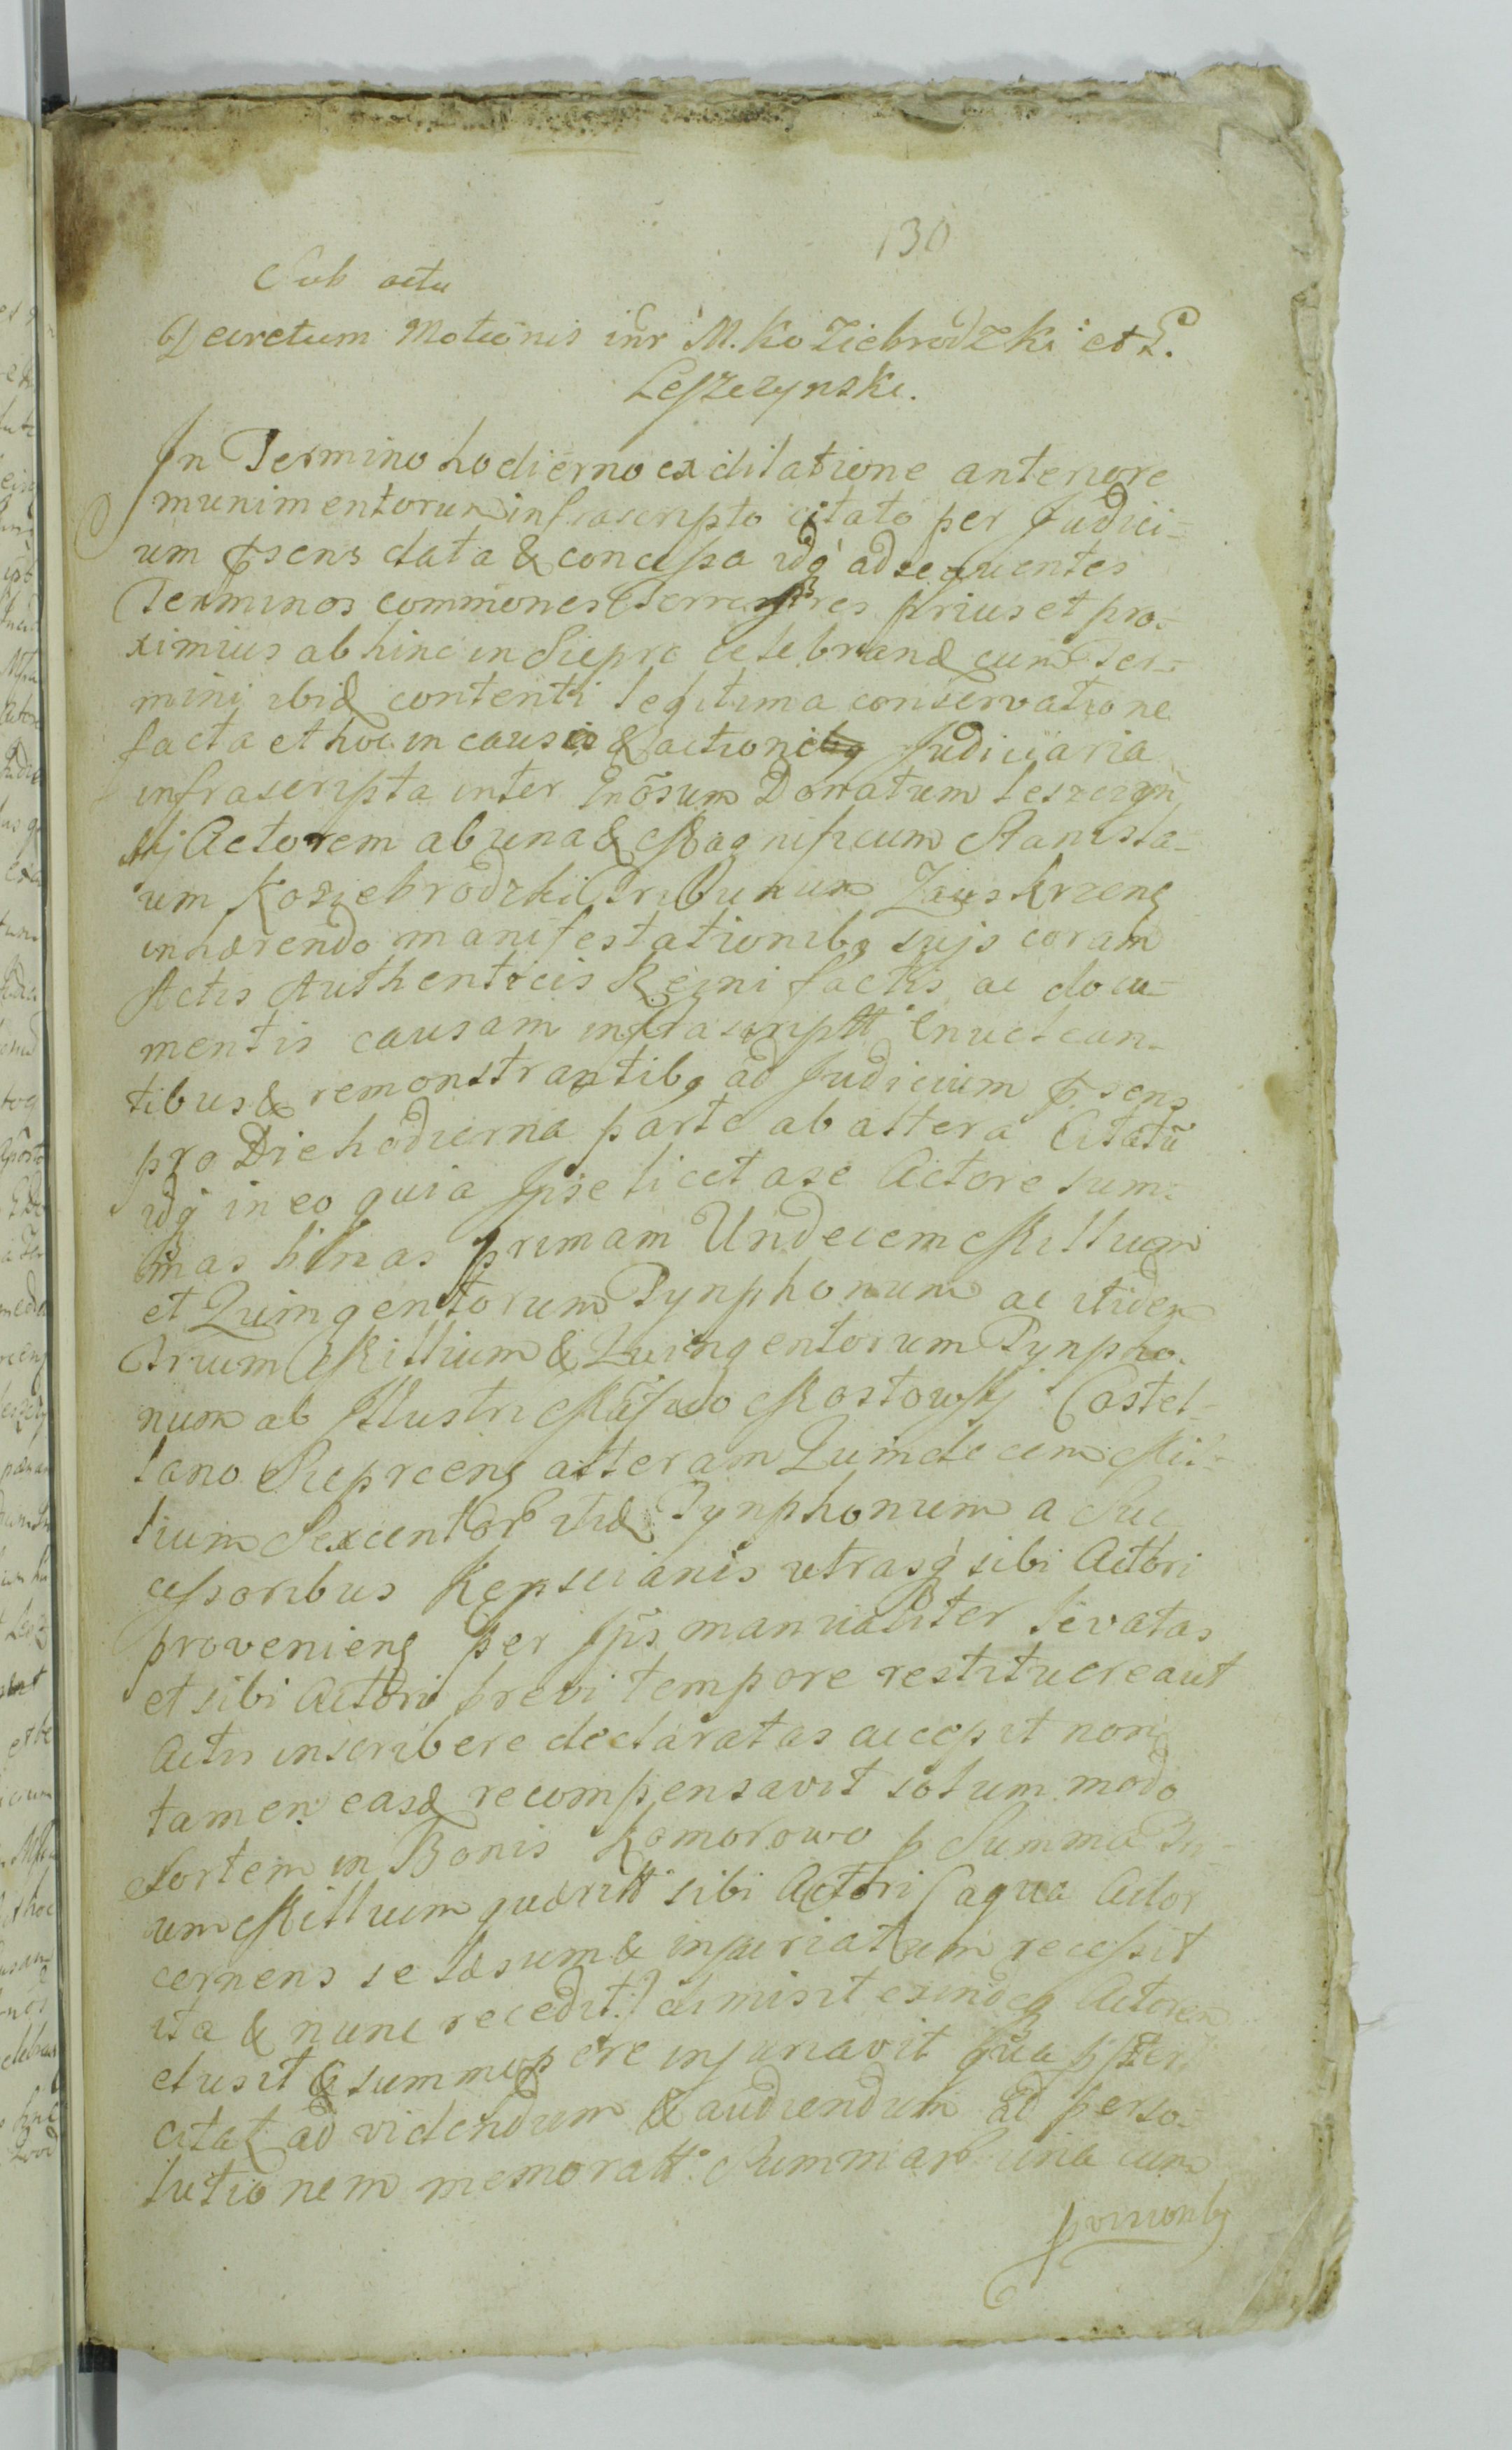 130
Sub actu
Decretum Motionis inr M. Koziebrodzki et L.
Leszczynski.
In Termino hodierno ex dilatione anteriore
munimentorum infrascripto citato per Judici-
um psens data & concessa idq adsequentes
Terminos communes Terrestres prius et pro-
ximius abhinc in Siepre celebrand cum Ter-
mini ibid contenti legitima conservatione
facta et hoc in causa & actione Judiciaria
infrascripta inter Gnosum Donatum Leszczyn
skj Actorem ab una & Magnificum Stanisla-
um Koziebrodzki Tribunum Zauskrzens
inhærendo manifestationibq sujs coram
Actis Authenticis Regni factis ac docu-
mentis causam infrascriptt enuclean-
tibus & remonstrantibq ad Judicium psens
pro Die hodierna parte ab altera Citatu
idq in eo quia Ipse licet a se Actore sum-
mas binas primam Undecem Millium
et Quingentorum Tynphonum ac itidem
Trium Millium & Quingentorum Tynpho-
num ab Illustri Mostowskj Castel-
lano Sieprcens alteram Quindecem Mil-
lium Sexcentor itid Tynphonum a Suc
cessoribus Kępscianis utrasq sibi Actori
proveniens per Ips manualiter levatas
et sibi Actori brevi tempore restituere aut
Actis inscribere declaratas accepit non
tamen easd recompensavit solum modo
Sortem in Bonis Komorowo p Summa Tri-
um Millium quæritt sibi Actori (a qua Actor
cernens se læsum & injuriatum recessit
ita & nunc recedit) dimisit exindeq Actorem
elusit & summopere injuriavit Qua ppter
citat ad videndum & audiendum ad perso-
lutionem memoratt Summar una cum